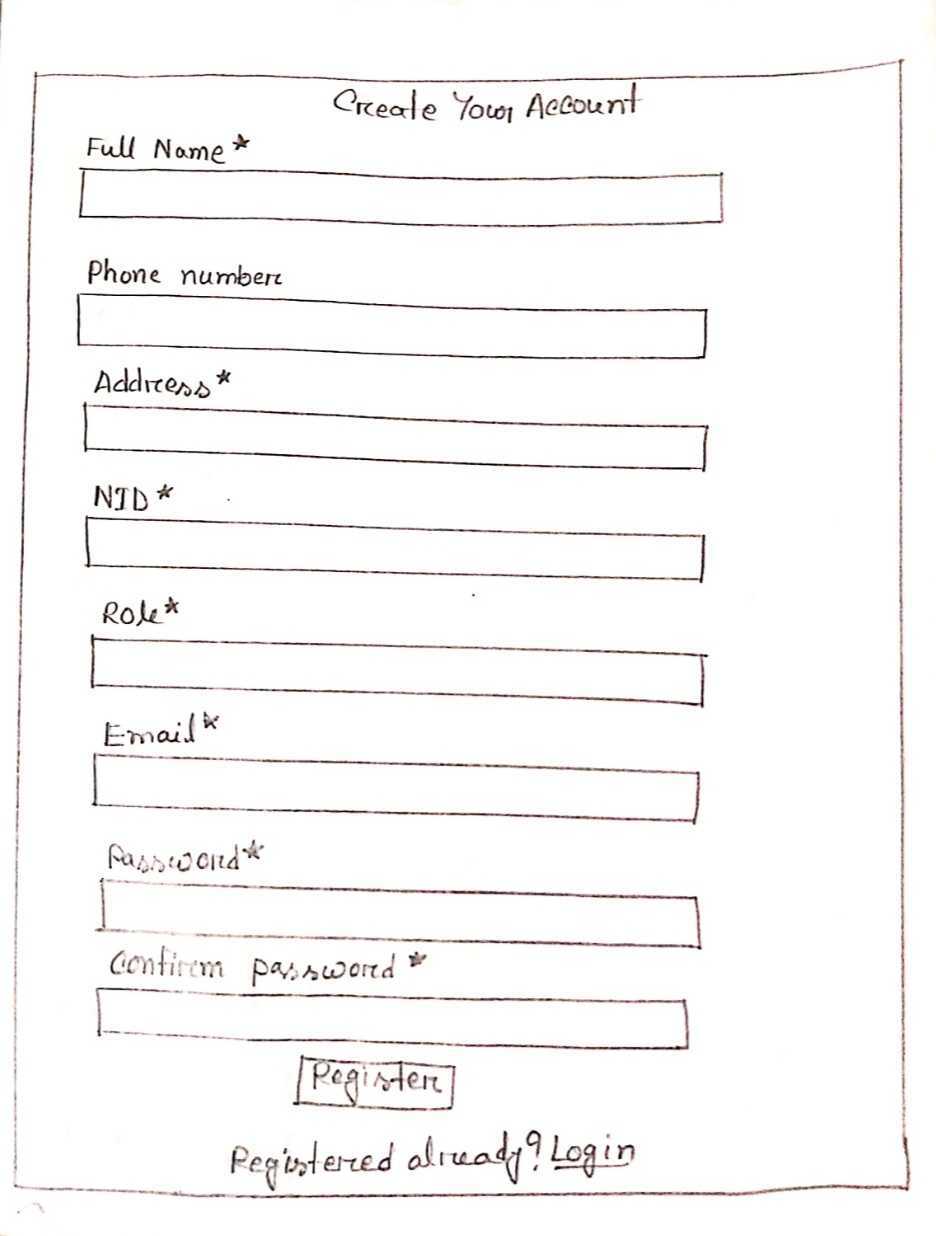 Create Your Account
Full Name*
Phone number
Address*
NID*
Role*
Email*
Password*
Confirm password*
Register
Registered already? Login